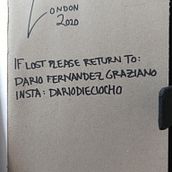 LONDON
2020
IF LOST PLEASE RETURN TO:
DARIO FERNANDEZ GRAZIANO
INSTA: DARIODIECIOCHO